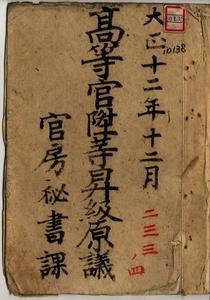 大正十二年十二月
高等官陞等昇級原議
官房秘書課
10138
二三三ノ四